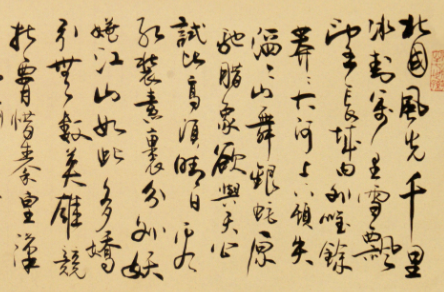 北國風光千里
冰封萬里雪飄
望長城内外唯餘
莽々大河上下頓失
滔々山舞銀蛇原
馳腊象欲與天公
試比高須晴日看
紅裝素裹分外妖
嬈江山如此多嬌
引無數英雄競
折腰惜秦皇漢